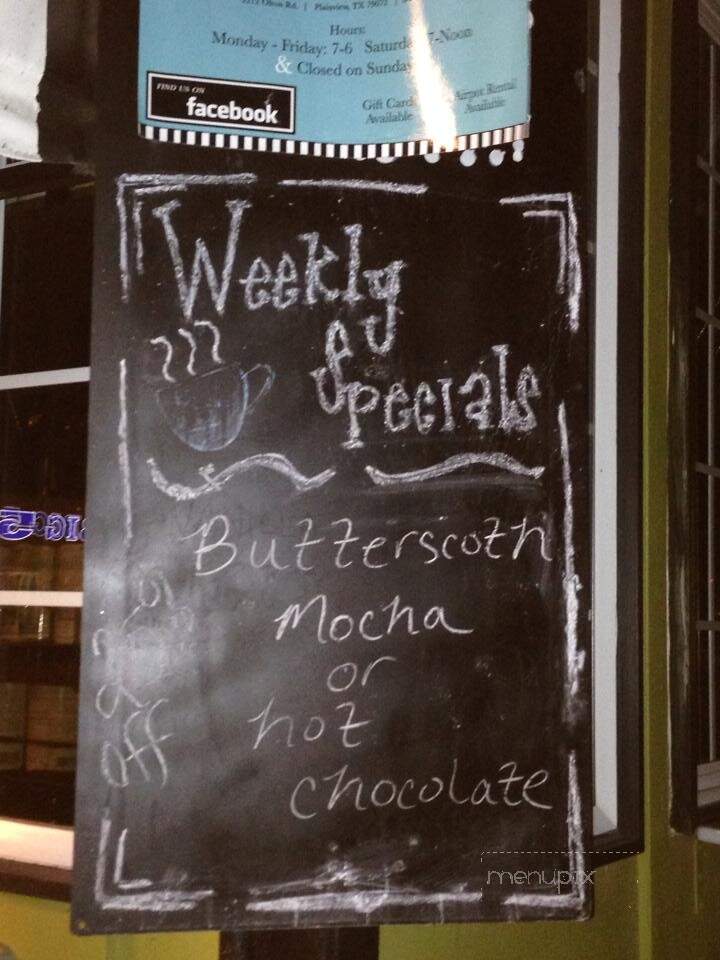 Olton Rd. | Plainview, TX 79072 |
Hours:
Monday - Friday: 7-6 Saturday 7-Noon
& Closed on Sunday
FIND US ON
facebook
Gift Card
Available
Airpot Rental
Available
Weekly
Specials
Butterscoth
Mocha
or
hot
chocolate
off
menupix